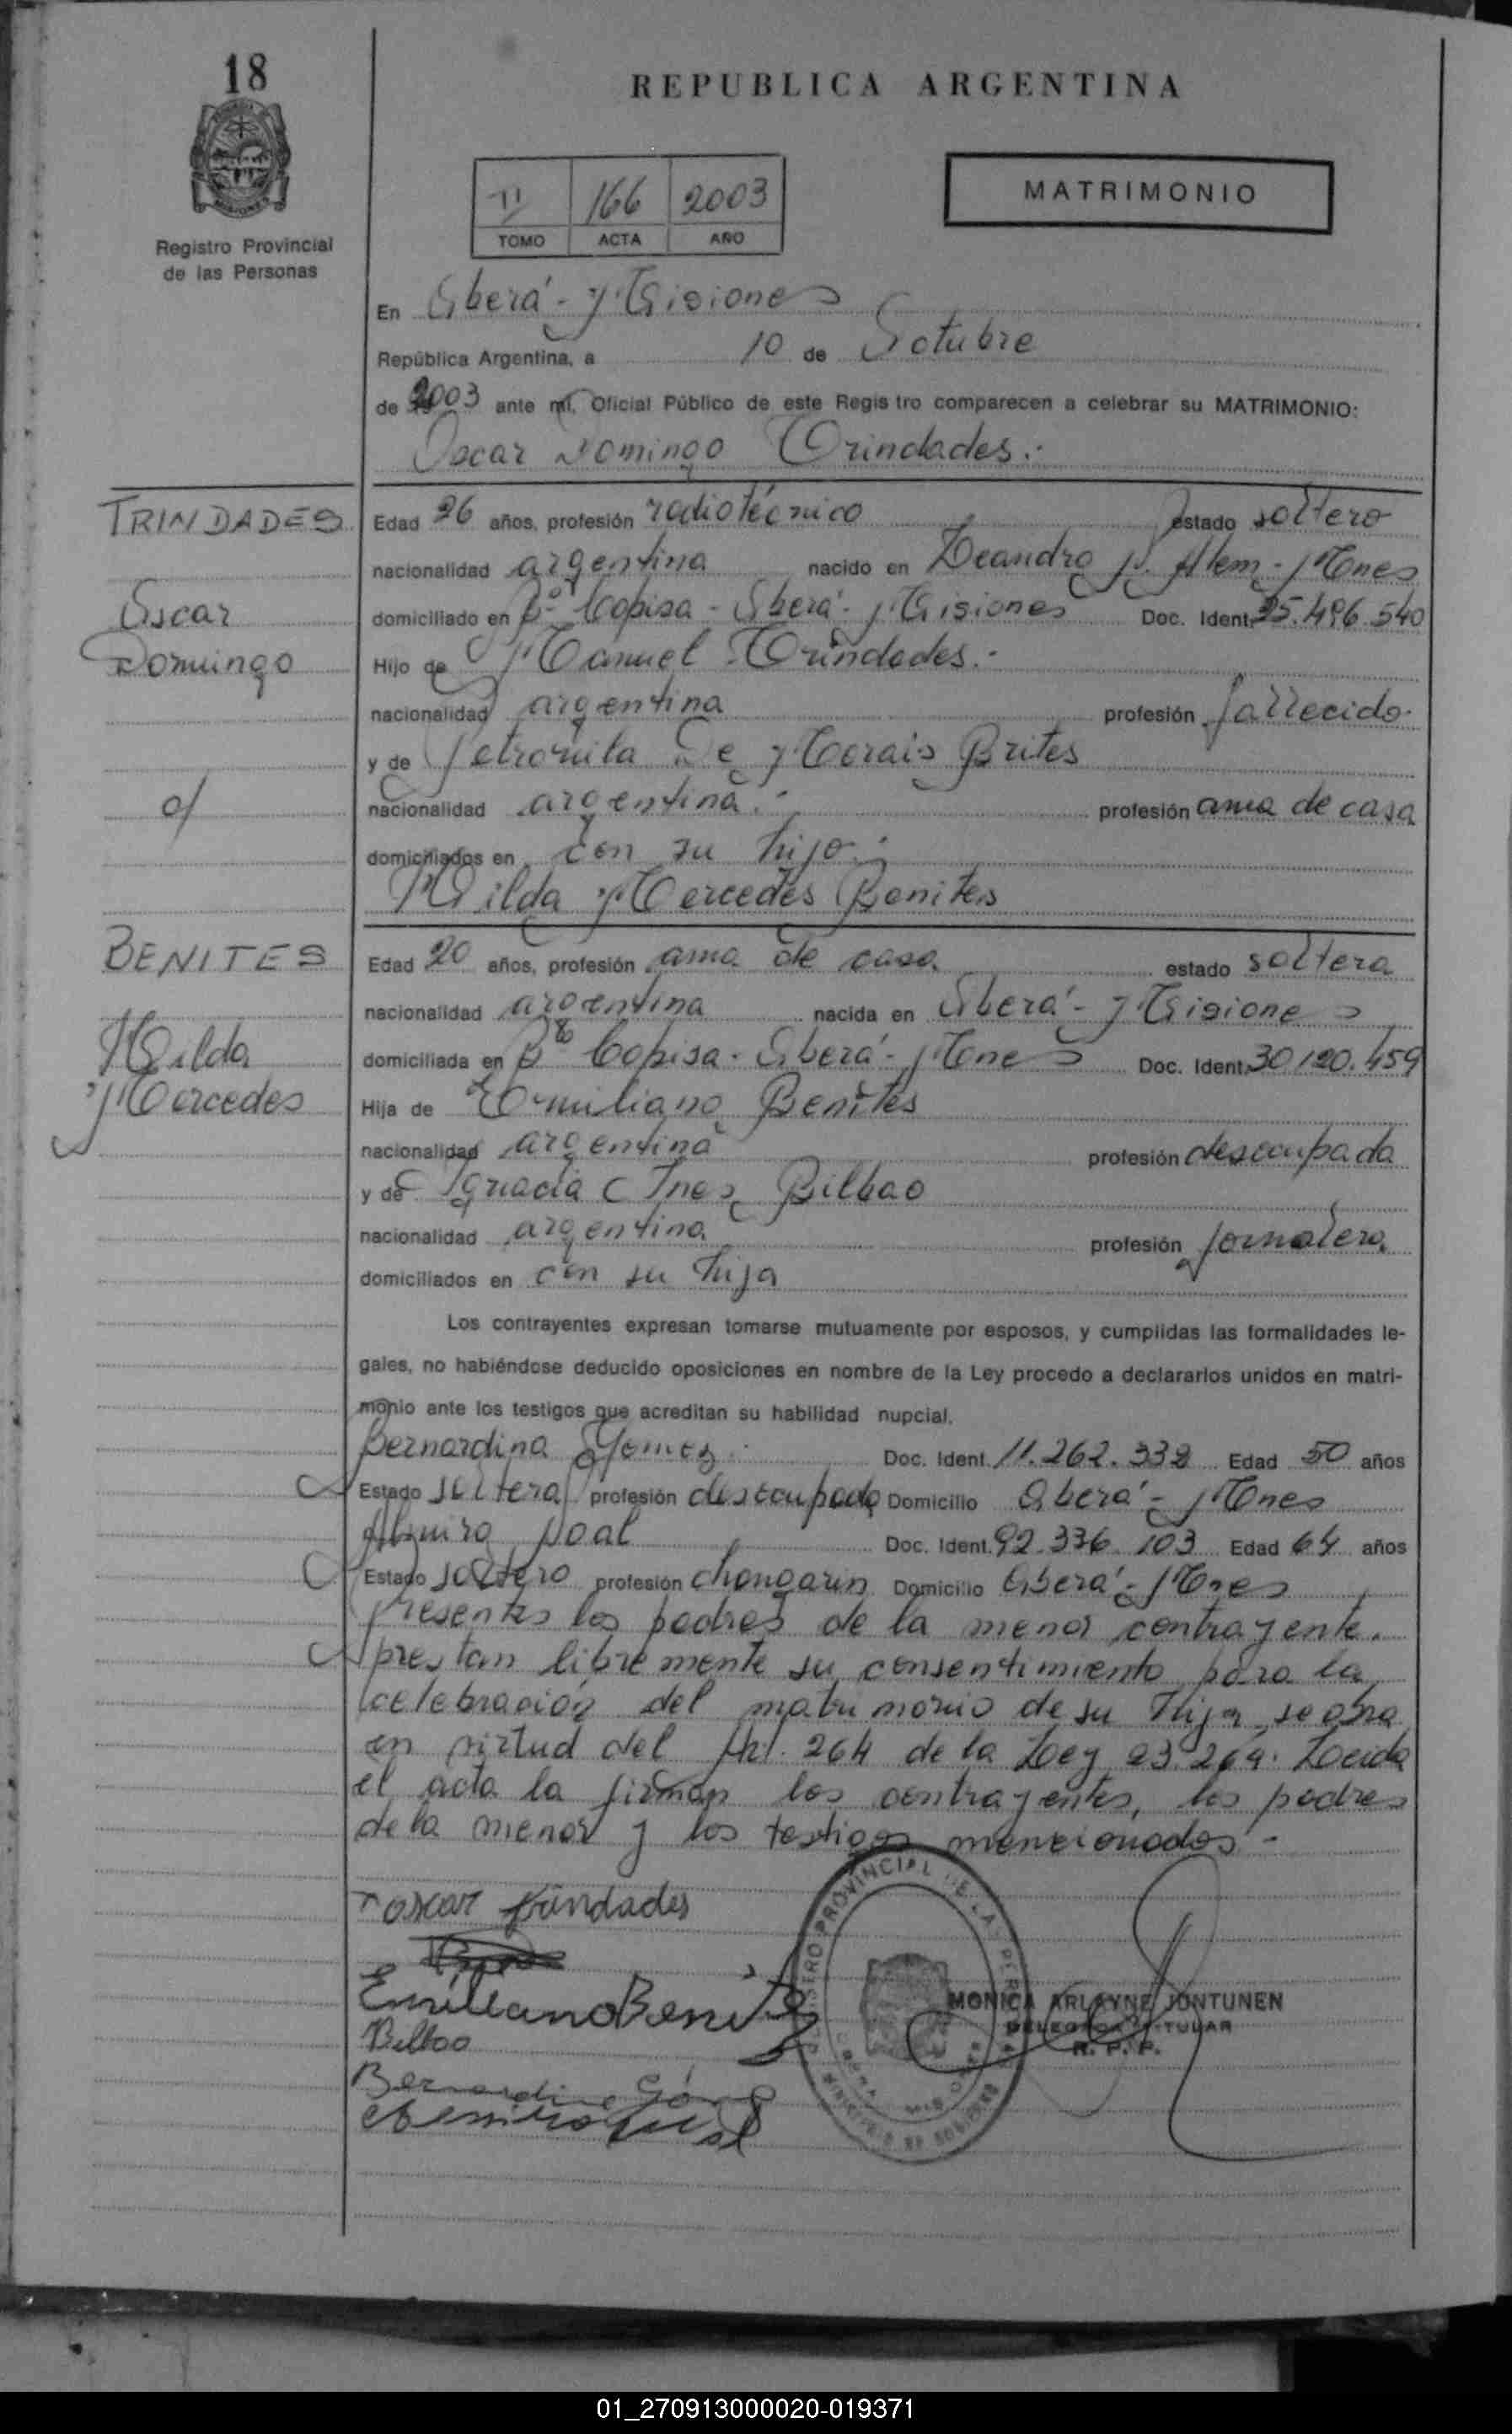 18
REPUBLICA ARGENTINA
Registro Provincial
de las Personas
II 166 2003
TOMO ACTA AÑO
MATRIMONIO
En Oberá - Misiones
República Argentina, a 10 de Octubre
de 2003 ante mí, Oficial Público de este Regis tro comparecen a celebrar su MATRIMONIO:
Oscar Domingo Trindades.-
TRINDADES
Oscar
Domingo
c/
Edad 26 años, profesión radiotécnico estado soltero
nacionalidad argentina nacido en Leandro N. Alem - Mnes
domiciliado en Bº Copisa - Oberá - Misiones Doc. Ident. 25.496.540
Hijo de Manuel Trindades.-
nacionalidad argentina profesión fallecido.
y de Petronila De Morais Brites
nacionalidad argentina.- profesión ama de casa
domiciliados en con su hijo.-
Hilda Mercedes Benites
BENITES
Hilda
Mercedes
Edad 20 años, profesión ama de casa estado soltera
nacionalidad argentina nacida en Oberá - Misiones
domiciliada en Bº Copisa - Oberá - Mnes Doc. Ident. 30.120.459
Hija de Emiliano Benites
nacionalidad argentina profesión desocupada
y de Ignacia Ines Bilbao
nacionalidad argentina profesión jornalera
domiciliados en con su hija
Los contrayentes expresan tomarse mutuamente por esposos, y cumplidas las formalidades le-
gales, no habiéndose deducido oposiciones en nombre de la Ley procedo a declararlos unidos en matri-
monio ante los testigos que acreditan su habilidad nupcial.
Bernardina Gomez Doc. Ident. 11.262.338 Edad 50 años
Estado soltera profesión desocupada Domicilio Oberá - Mnes
Noal Doc. Ident. 92.336.103 Edad 64 años
Estado soltero profesión changarin Domicilio Oberá - Mnes
Presentes los padres de la menor contrayente.
prestan libremente su consentimiento para la
celebración del matrimonio de su hija, se obra
en virtud del Art. 264 de la Ley 23.264. Leida
el acta la firman los contrayentes, los padres
de la menor y los testigos mencionados.-
oscar trindades
Emiliano Benitez
Bilbao
Bernardina Gómez
MONICA ARLAYNE JONTUNEN
DELEGADA TITULAR
R. P. P.
01_270913000020-019371